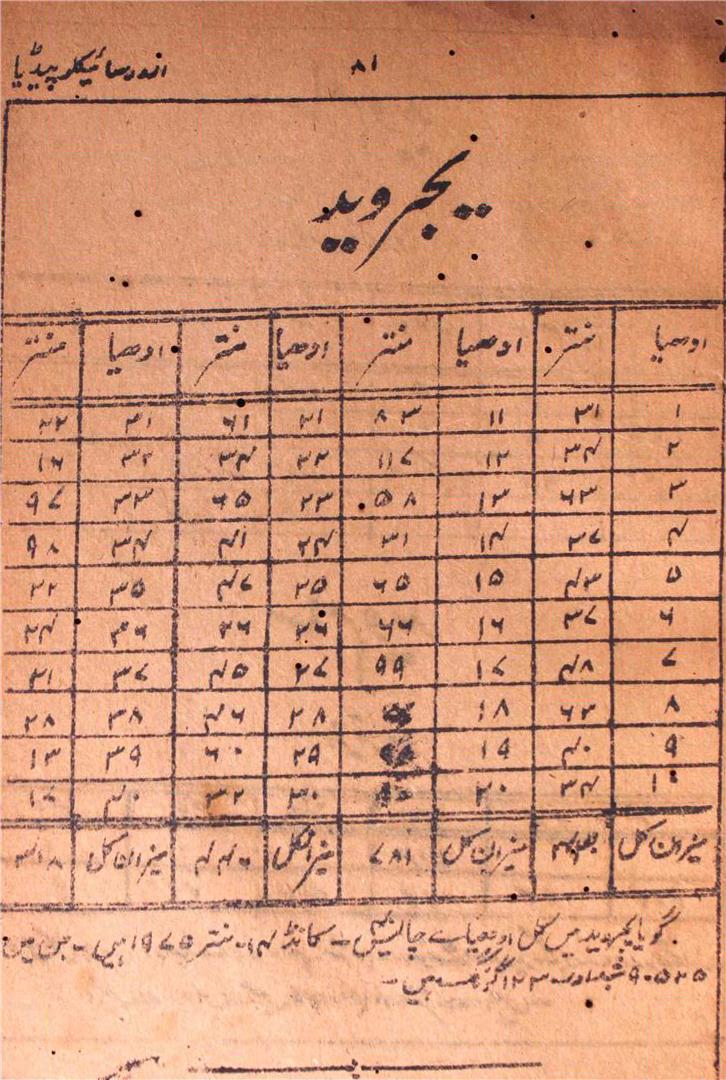 اندر سائیکلوپیڈیا ۸۱
یجروید
ادھیا منتر ادھیا منتر ادھیا منتر ادھیا منتر
۱ ۳۱ ۱۱ ۸۳ ۲۱ ۶۱ ۳۱ ۲۲
۲ ۳۴ ۱۲ ۱۱۷ ۲۲ ۳۴ ۳۲ ۱۶
۳ ۶۳ ۱۳ ۵۸ ۲۳ ۶۵ ۳۳ ۹۷
۴ ۳۷ ۱۴ ۳۱ ۲۴ ۴۱ ۳۴ ۹۸
۵ ۴۳ ۱۵ ۶۵ ۲۵ ۴۷ ۳۵ ۲۲
۶ ۳۷ ۱۶ ۶۶ ۲۶ ۲۶ ۳۶ ۲۴
۷ ۴۸ ۱۷ ۹۹ ۲۷ ۴۵ ۳۷ ۲۱
۸ ۶۳ ۱۸ ۲۸ ۴۶ ۳۸ ۲۸
۹ ۴۰ ۱۹ ۲۹ ۶۰ ۳۹ ۱۳
۱۰ ۳۴ ۲۰ ۳۰ ۲۲ ۴۰ ۱۷
میزان کل میزان کل ۷۸۱ میزان کل ۴۴۰ میزان کل
گویا یجروید میں کل ادھیائے چالیس - کانڈ ۱۴ - منتر ۱۹۷۵ ہیں - جن میں
۹۰۵۲۵ شبد اور ہیں -